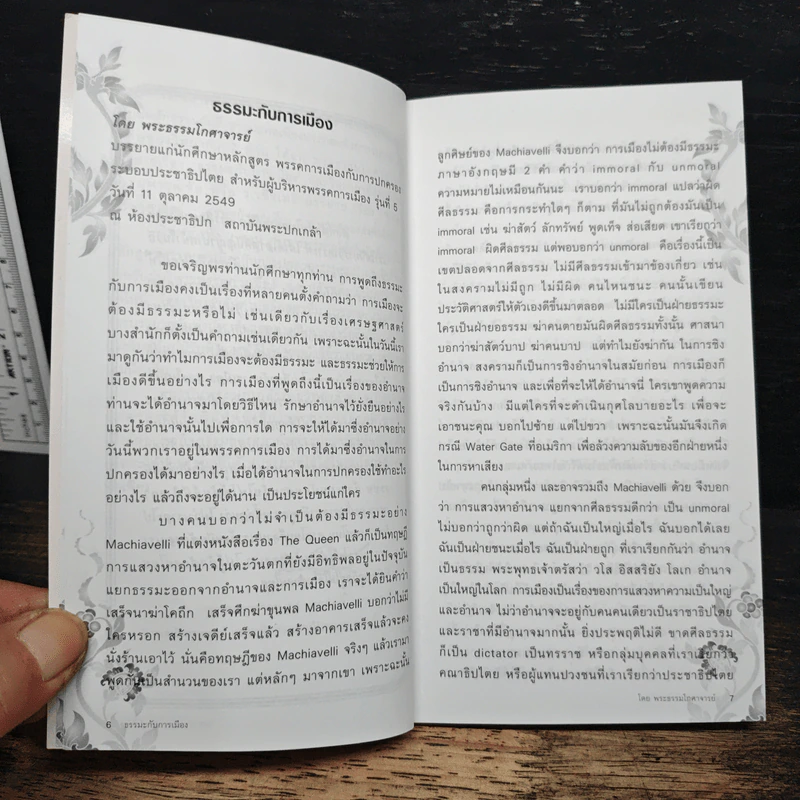 ธรรมะกับการเมือง
โดย พระธรรมโกศาจารย์
บรรยายแก่นักศึกษาหลักสูตร พรรคการเมืองกับการปกครอง
ระบอบประชาธิปไตย สำหรับผู้บริหารพรรคการเมือง รุ่นที่ 5
วันที่ 11 ตุลาคม 2549
ณ ห้องประชาธิปก สถาบันพระปกเกล้า
ขอเจริญพรท่านนักศึกษาทุกท่าน การพูดถึงธรรมะ
กับการเมืองคงเป็นเรื่องที่หลายคนตั้งคำถามว่า การเมืองจะ
ต้องมีธรรมะหรือไม่ เช่นเดียวกับเรื่องเศรษฐศาสตร์
บางสำนักก็ตั้งเป็นคำถามเช่นเดียวกัน เพราะฉะนั้นในวันนี้เรา
มาดูกันว่าทำไมการเมืองจะต้องมีธรรมะ และธรรมะช่วยให้การ
เมืองดีขึ้นอย่างไร การเมืองที่พูดถึงนี้เป็นเรื่องของอำนาจ
ท่านจะได้อำนาจมาโดยวิธีไหน รักษาอำนาจไว้ยั่งยืนอย่างไร
และใช้อำนาจนั้นไปเพื่อการใด การจะให้ได้มาซึ่งอำนาจอย่าง
วันนี้พวกเราอยู่ในพรรคการเมือง การได้มาซึ่งอำนาจในการ
ปกครองได้มาอย่างไร เมื่อได้อำนาจในการปกครองใช้ทำอะไร
อย่างไร แล้วถึงจะอยู่ได้นาน เป็นประโยชน์แก่ใคร
บางคนบอกว่าไม่จำเป็นต้องมีธรรมะอย่าง
Machiavelli ที่แต่งหนังสือเรื่อง The Queen แล้วก็เป็นทฤษฎี
การแสวงหาอำนาจในตะวันตกที่ยังมีอิทธิพลอยู่ในปัจจุบัน
แยกธรรมะออกจากอำนาจและการเมือง เราจะได้ยินคำว่า
เสร็จนาฆ่าโคถึก เสร็จศึกฆ่าขุนพล Machiavelli บอกว่าไม่มี
ใครหรอก สร้างเจดีย์เสร็จแล้ว สร้างอาคารเสร็จแล้วจะคง
นั่งร้านเอาไว้ นั่นคือทฤษฎีของ Machiavelli จริงๆ แล้วเรามา
พูดกันเป็นสำนวนของเรา แต่หลักๆ มาจากเขา เพราะฉะนั้น
6 ธรรมะกับการเมือง
ลูกศิษย์ของ Machiavelli จึงบอกว่า การเมืองไม่ต้องมีธรรมะ
ภาษาอังกฤษมี 2 คำ คำว่า immoral กับ unmoral
ความหมายไม่เหมือนกันนะ เราบอกว่า immoral แปลว่าผิด
ศีลธรรม คือการกระทำใดๆ ก็ตาม ที่มันไม่ถูกต้องมันเป็น
immoral เช่น ฆ่าสัตว์ ลักทรัพย์ พูดเท็จ ส่อเสียด เขาเรียกว่า
immoral ผิดศีลธรรม แต่พอบอกว่า unmoral คือเรื่องนี้เป็น
เขตปลอดจากศีลธรรม ไม่มีศีลธรรมเข้ามาข้องเกี่ยว เช่น
ในสงครามไม่มีถูก ไม่มีผิด คนไหนชนะ คนนั้นเขียน
ประวัติศาสตร์ให้ตัวเองดีขึ้นมาตลอด ไม่มีใครเป็นฝ่ายธรรมะ
ใครเป็นฝ่ายอธรรม ฆ่าคนตายมันผิดศีลธรรมทั้งนั้น ศาสนา
บอกว่าฆ่าสัตว์บาป ฆ่าคนบาป แต่ทำไมยังฆ่ากัน ในการชิง
อำนาจ สงครามก็เป็นการชิงอำนาจในสมัยก่อน การเมืองก็
เป็นการชิงอำนาจ และเพื่อที่จะให้ได้อำนาจนี่ ใครเขาพูดความ
จริงกันบ้าง มีแต่ใครที่จะดำเนินกุศโลบายอะไร เพื่อจะ
เอาชนะคุณ บอกไปซ้าย แต่ไปขวา เพราะฉะนั้นมันจึงเกิด
กรณี Water Gate ที่อเมริกา เพื่อล้วงความลับของอีกฝ่ายหนึ่ง
ในการหาเสียง
คนกลุ่มหนึ่ง และอาจรวมถึง Machiavelli ด้วย จึงบอก
ว่า การแสวงหาอำนาจ แยกจากศีลธรรมดีกว่า เป็น unmoral
ไม่บอกว่าถูกว่าผิด แต่ถ้าฉันเป็นใหญ่เมื่อไร ฉันบอกได้เลย
ฉันเป็นฝ่ายชนะเมื่อไร ฉันเป็นฝ่ายถูก ที่เราเรียกกันว่า อำนาจ
เป็นธรรม พระพุทธเจ้าตรัสว่า วโส อิสสริยัง โลเก อำนาจ
เป็นใหญ่ในโลก การเมืองเป็นเรื่องของการแสวงหาความเป็นใหญ่
และอำนาจ ไม่ว่าอำนาจจะอยู่กับคนคนเดียวเป็นราชาธิปไตย
และราชาที่มีอำนาจมากนั้น ยิ่งประพฤติไม่ดี ขาดศีลธรรม
ก็เป็น dictator เป็นทรราช หรือกลุ่มบุคคลที่เราเรียกว่า
คณาธิปไตย หรือผู้แทนปวงชนที่เราเรียกว่าประชาธิปไตย
โดย พระธรรมโกศาจารย์ 7